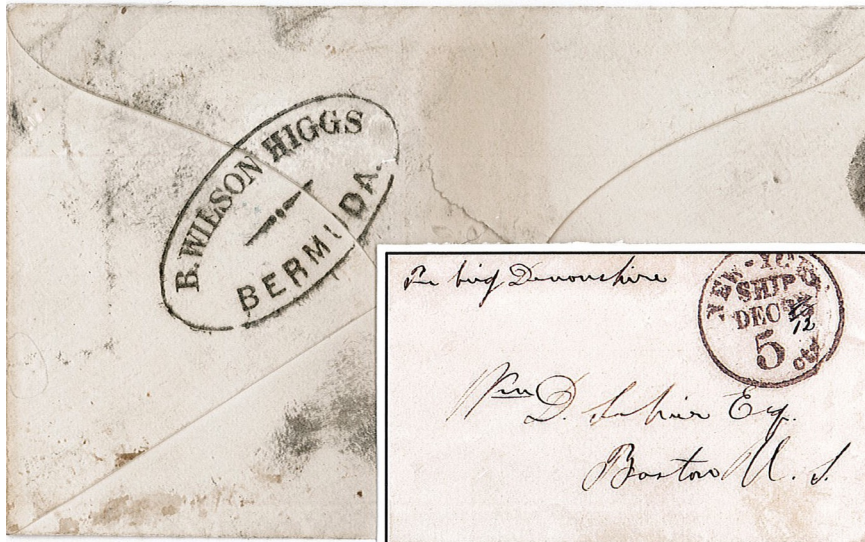 B. WILSON HIGGS
BERMUDA.
Per brig Devonshire
NEW-YORK
SHIP
DEC
12
5 cts
Wm D. Sohier Esq.
Boston U. S.